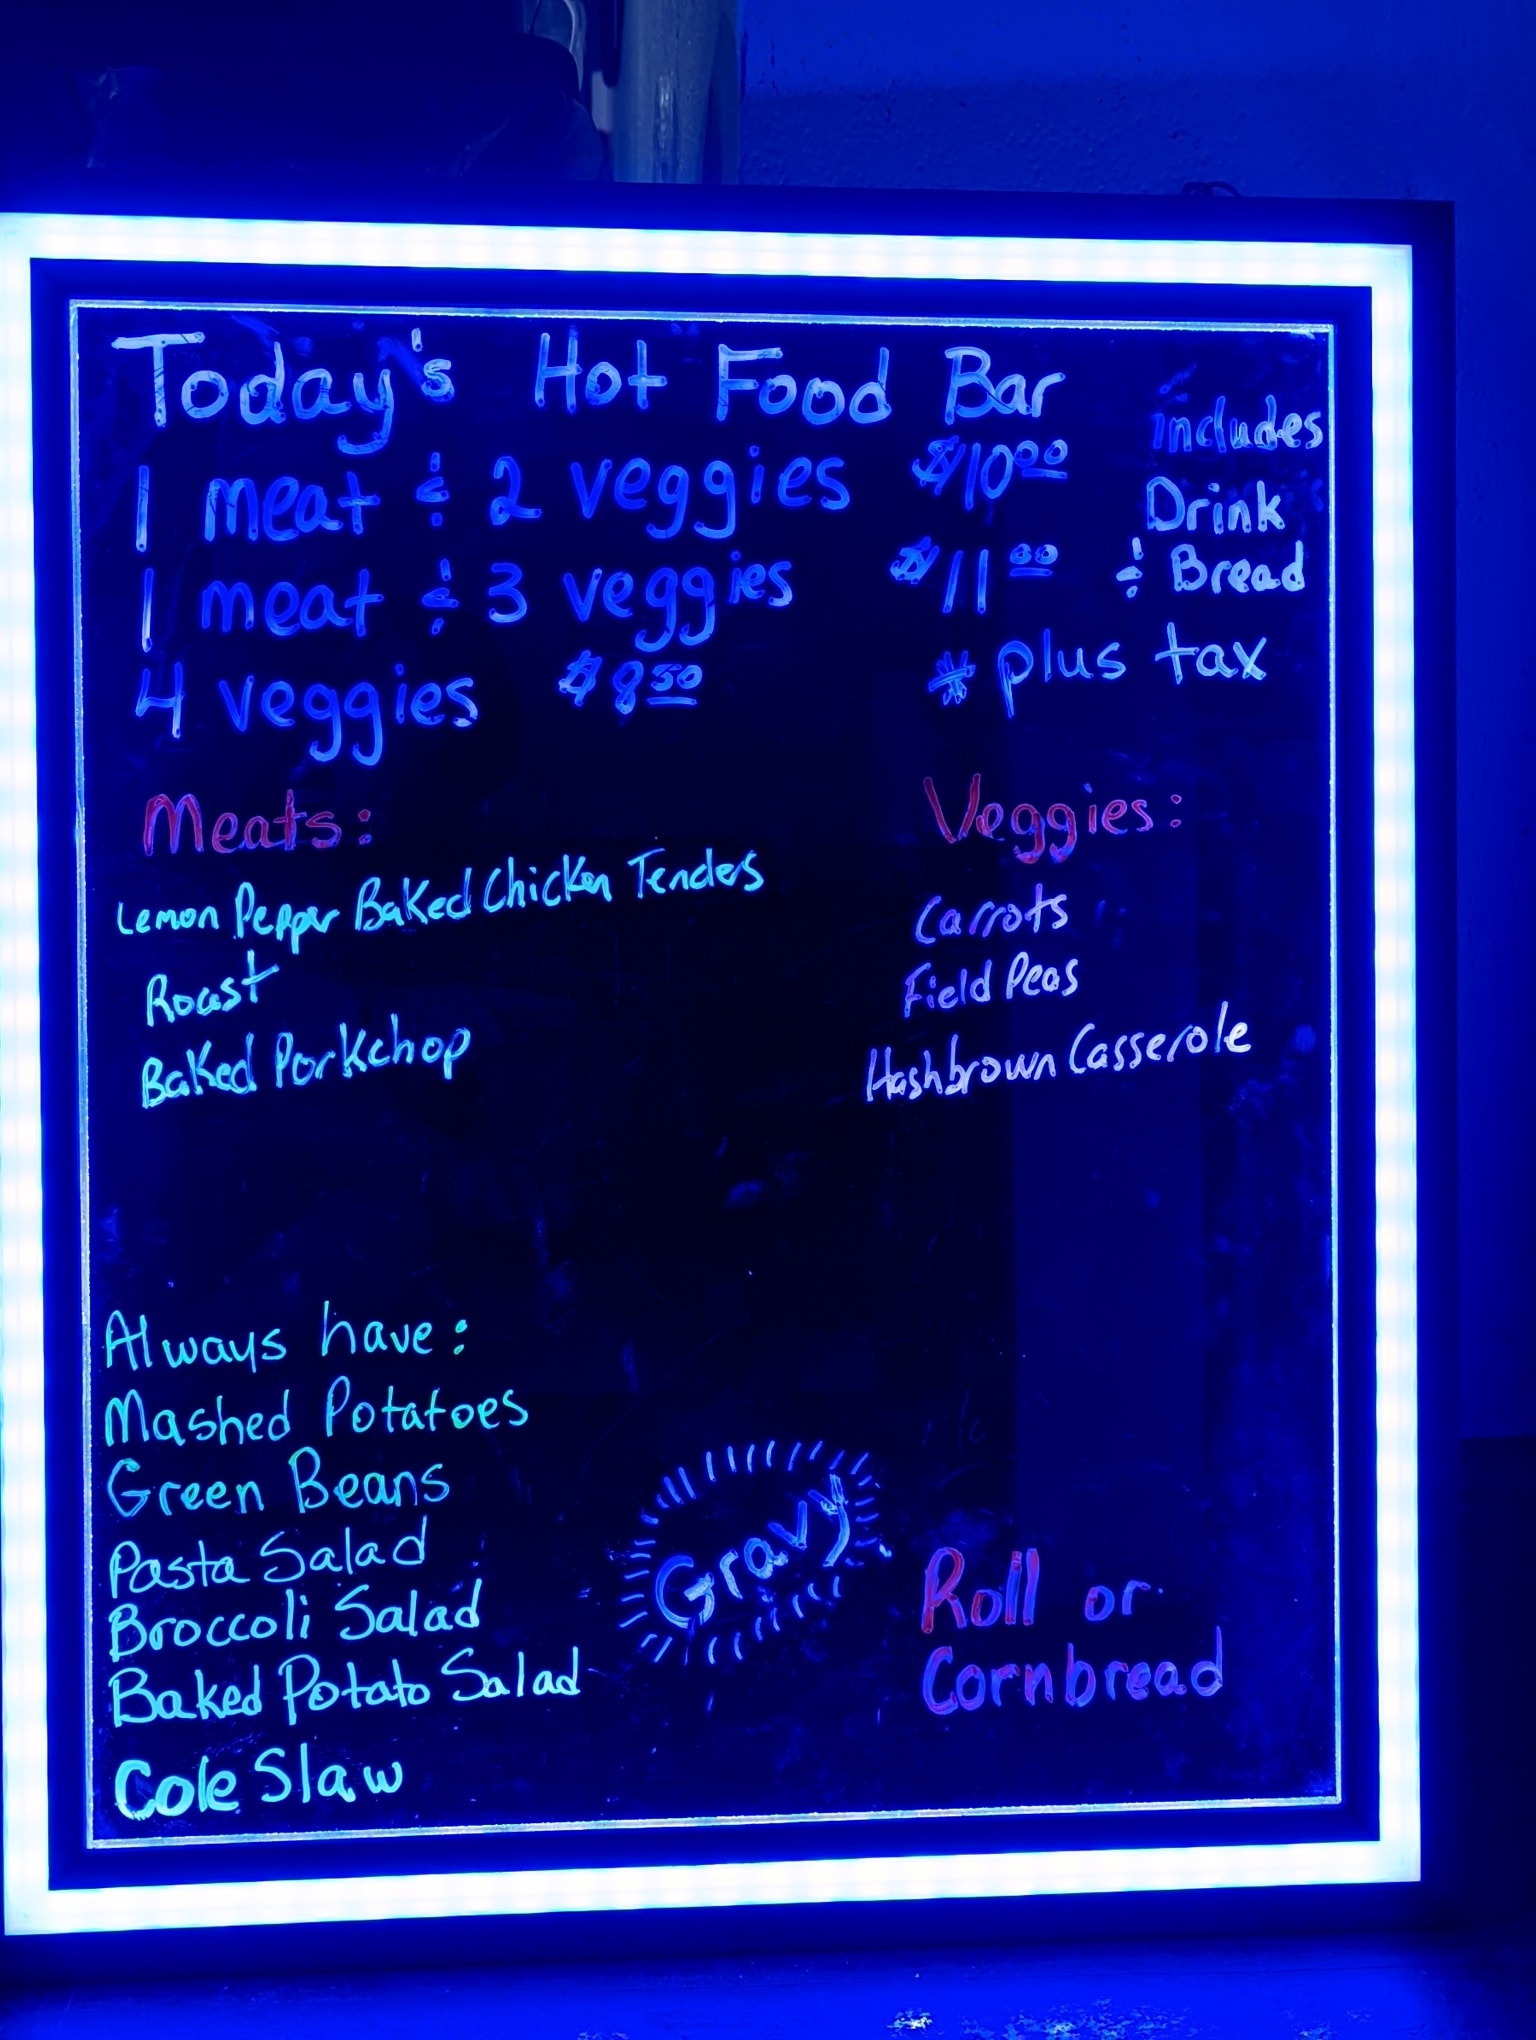 Today's Hot Food Bar
1 meat & 2 veggies $10.00
1 meat & 3 veggies $11.00
4 veggies $8.50
includes
Drink
& Bread
* plus tax
Meats:
Lemon Pepper Baked Chicken Tenders
Roast
Baked Porkchop
Veggies:
Carrots
Field Peas
Hashbrown Casserole
Always have:
Mashed Potatoes
Green Beans
Pasta Salad
Broccoli Salad
Baked Potato Salad
Cole Slaw
Gravy
Roll or
Cornbread